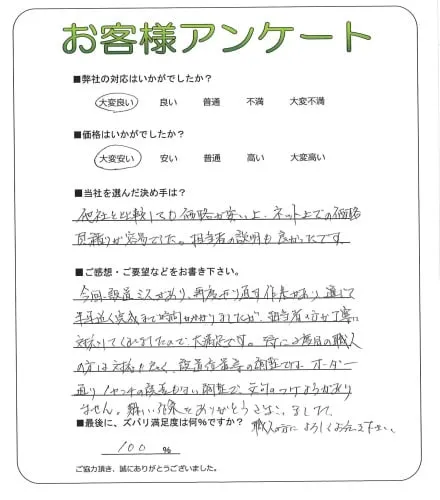 お客様アンケート
■弊社の対応はいかがでしたか？
大変良い 良い 普通 不満 大変不満
■価格はいかがでしたか？
大変安い 安い 普通 高い 大変高い
■当社を選んだ決め手は？
他社と比較しても価格が安い上、ネット上での価格
見積りが容易でした。担当者の説明も良かったです。
■ご感想・ご要望などをお書き下さい。
今回、製造ミスがあり、再度やり直す作業があり、
半年近く完成まで時間がかかりましたが、担当者の方が丁寧に
対応してくれましたので、大満足です。特に2度目の職人
の方は対応も良く、の調整です。オーダー
通り 調整で、文句のつけようがあり
ません。ありがとうございました。
職人の方によろしくお伝え下さい。
■最後に、ズバリ満足度は何%ですか？
100 %
ご協力頂き、誠にありがとうございました。